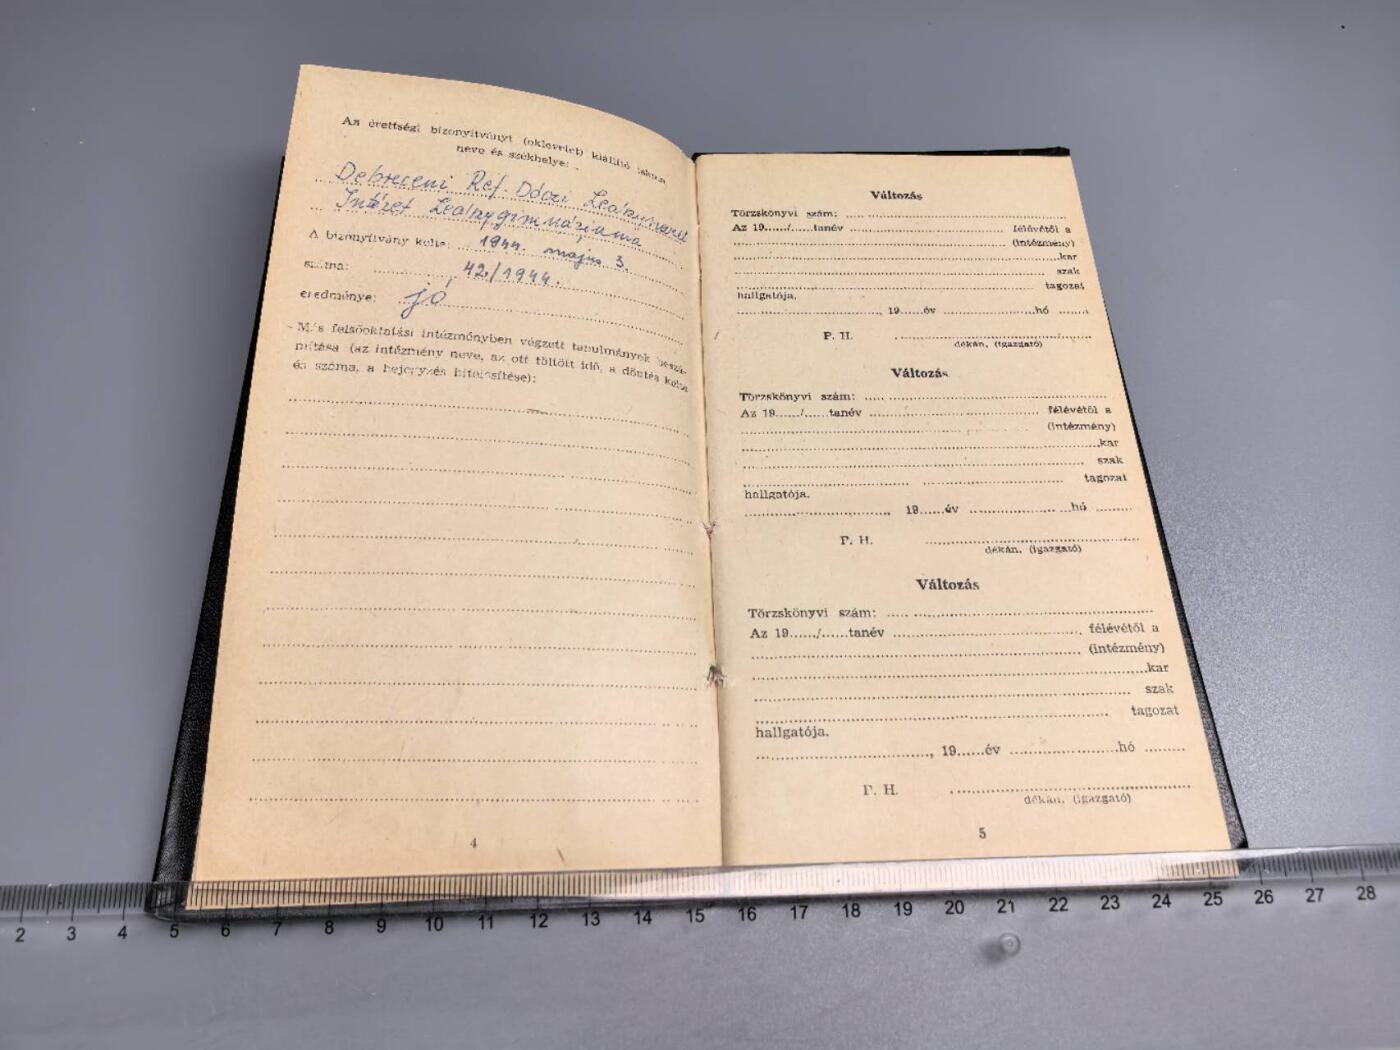 Az érettségi bizonyítványt (oklevelet) kiállító iskola
neve és székhelye:
Debreceni Ref. Dóczi Leánynevelő
Intézet Leánygimnáziuma
A bizonyítvány kelte: 1944. május 3.
száma: 42./1944.
eredménye: jó
Más felsőoktatási intézményben végzett tanulmányok beszá-
mítása (az intézmény neve, az ott töltött idő, a döntés kelte
és száma, a bejegyzés hitelesítése):
4
Változás
Törzskönyvi szám: ........
Az 19....../......tanév ........ félévétől a
........ (intézmény)
........kar
........ szak
........ tagozat
hallgatója.
........, 19......év ........hó ........
P. H.
dékán, (igazgató)
Változás
Törzskönyvi szám: ........
Az 19....../......tanév ........ félévétől a
........ (intézmény)
........kar
........ szak
........ tagozat
hallgatója.
........, 19......év ........hó ........
P. H.
dékán, (igazgató)
Változás
Törzskönyvi szám: ........
Az 19....../......tanév ........ félévétől a
........ (intézmény)
........kar
........ szak
........ tagozat
hallgatója.
........, 19......év ........hó ........
P. H.
dékán, (igazgató)
5
2 3 4 5 6 7 8 9 10 11 12 13 14 15 16 17 18 19 20 21 22 23 24 25 26 27 28